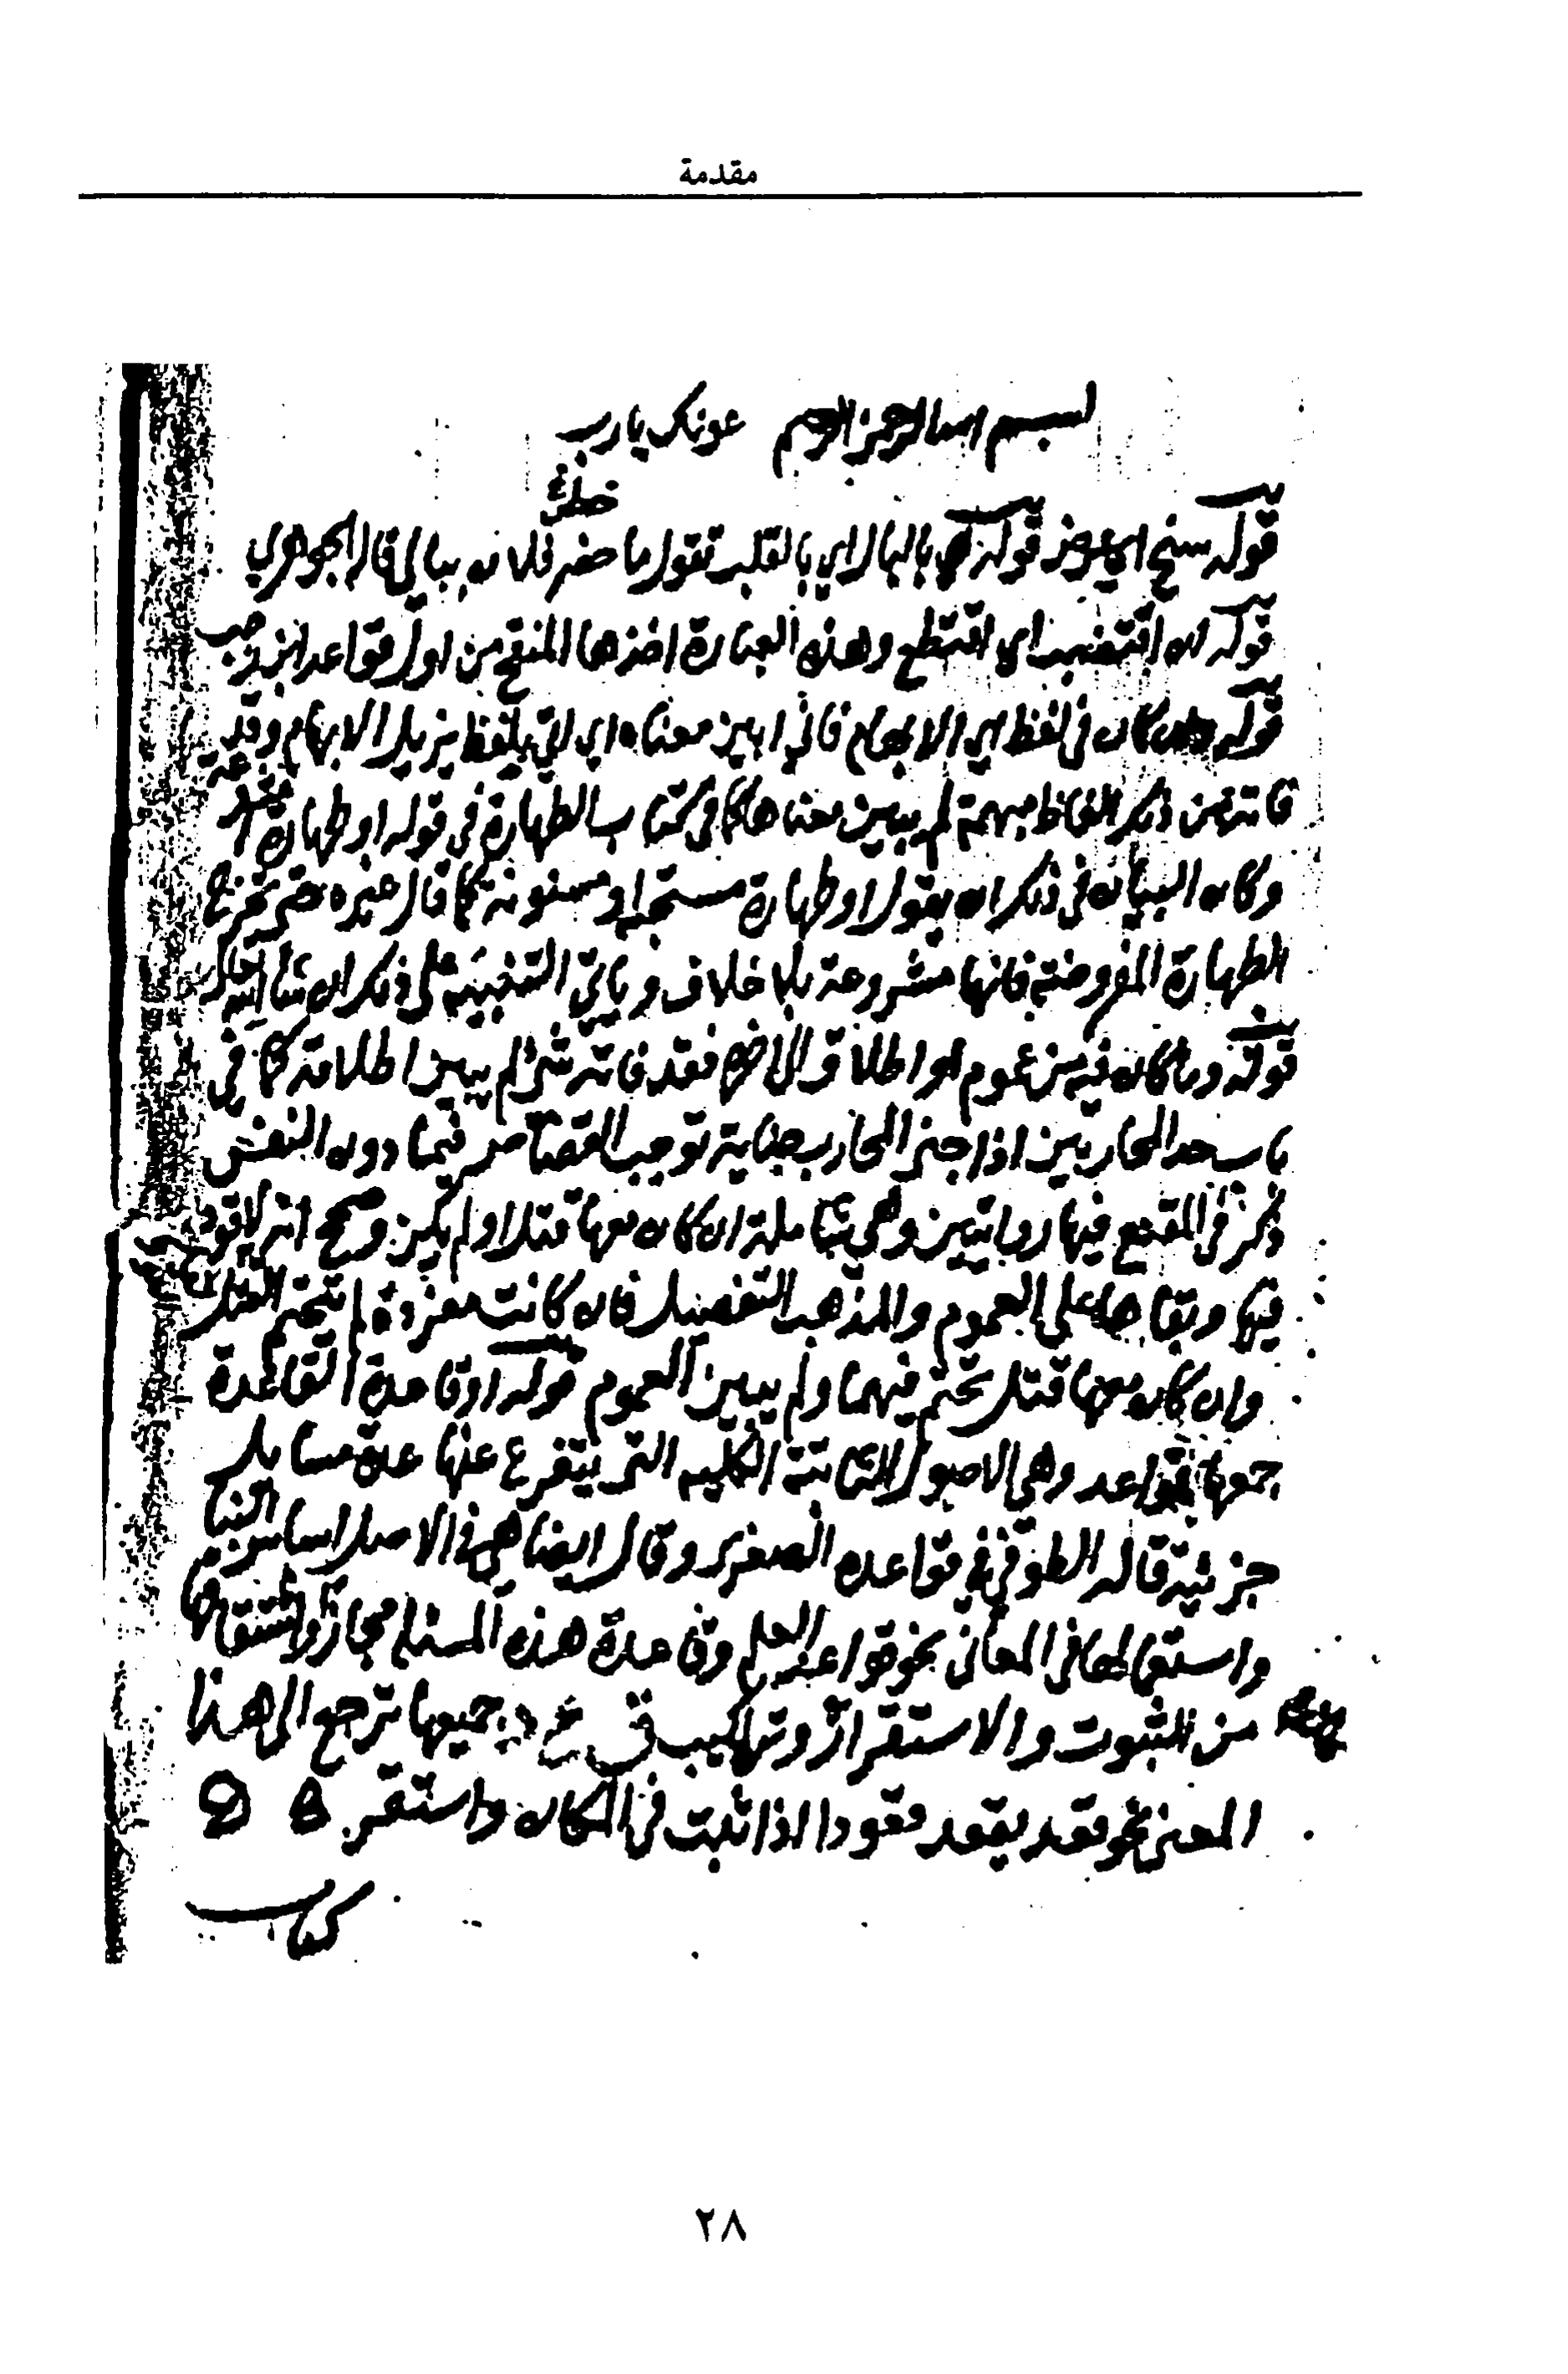 مقدمة
بسم الله الرحمن الرحيم عونك يا رب
خطر لي
قوله سنح اي عرض قوله بالبال اي بالقلب تقول ما خطر فلان ببالي قاله الجوهري
قوله ان اقتضب اي اقتطع وهذه العبارة اخذها المنقح من اول قواعد ابن رجب
قوله كان في لفظه الابهام فاني ابين معناه اي اتي بلفظ يزيل الابهام وقد
فاته من ذكر الفاظ مبهمة لم يبين معناها كما في كتاب الطهارة في قوله او طهارة مشروعة
وكان البيان في ذكر ان يقول او طهارة مستحبة او مسنونة كما قال غيره حتى تخرج
الطهارة المفروضة فانها مشروعة بلا خلاف وياتي التنبيه على ذكر ان شاء الله تعالى
قوله وما كان فيه من عموم او اطلاق الى اخره فقد فاته شيء لم يبين اطلاقه كما في
باب حد المحاربين اذا جنى المحارب جناية توجب القصاص فيما دون النفس
ذكر في المقنع فيها روايتين وهي شاملة ان كان معها قتل او لم يكن وصحح انه لا قود
فيها وبقاها على العموم والمذهب التفصيل فان كانت مفردة لم يتحتم القتل
وان كان معها قتل تحتم فيهما ولم يبين العموم قوله او قاعدة القاعدة
جمعها قواعد وهي الاصول الثابتة الكلية التي يتفرع عنها عدة مسايل
جزئية قاله الطوفي في قواعده الصغرى وقال ايضا هي في الاصل اساس البناء
واستعمالها في المعاني نحو قواعد العلم وقاعدة هذه المسئلة مجازا واشتقاقها
من الثبوت والاستقرار وتراكيب ق ع د جميعها ترجع الى هذا
المعنى نحو قعد يقعد قعودا اذا ثبت في المكان واستقر
كتاب
٢٨